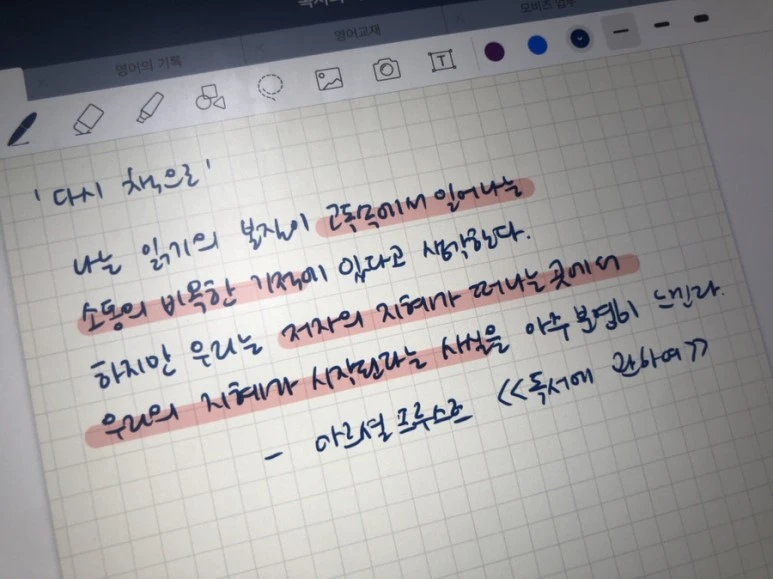 영어의 기록 영어교재 모비즈 업무
T
'다시 책으로'
나는 읽기의 본질이 고독속에서 일어나는
소통의 비옥한 기적에 있다고 생각한다.
하지만 우리는 저자의 지혜가 떠나는 곳에서
우리의 지혜가 시작된다는 사실을 아주 분명히 느낀다.
- 마르셀 프루스트 <<독서에 관하여>>